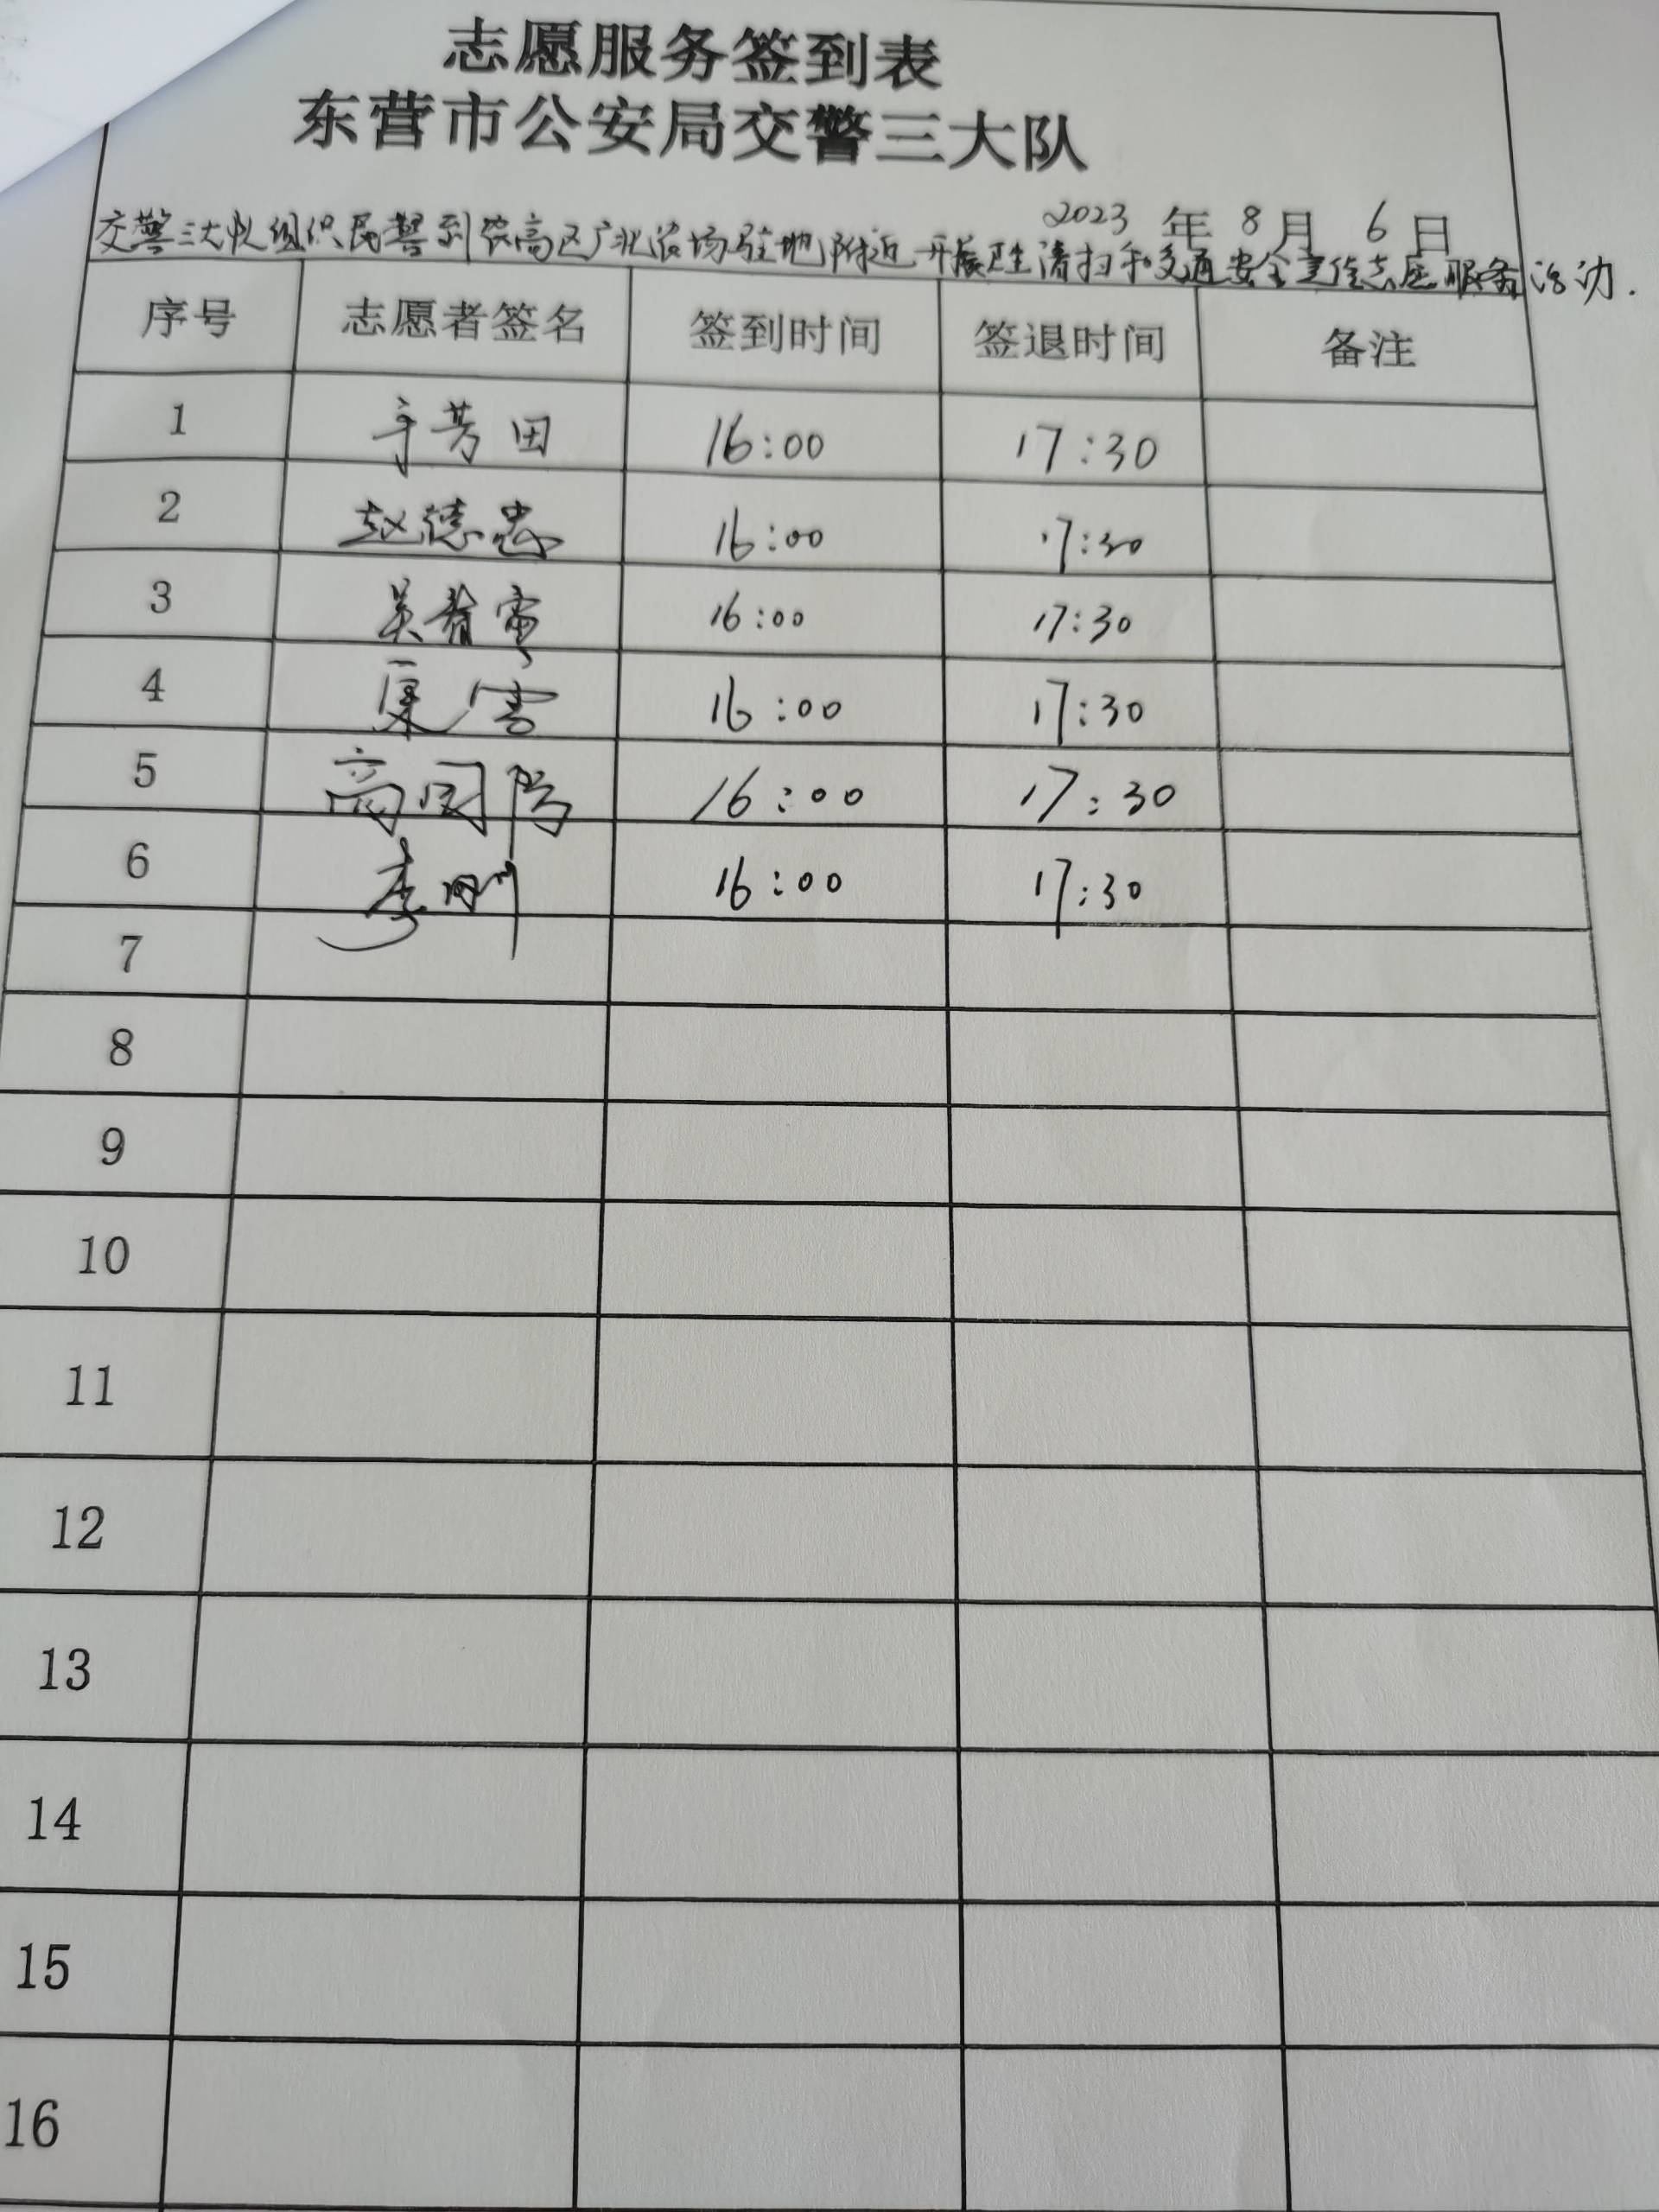 志愿服务签到表
东营市公安局交警三大队
2023 年 8 月 6 日
交警三大队组织民警到农高区广北农场驻地附近开展卫生清扫和交通安全宣传志愿服务活动.
序号 志愿者签名 签到时间 签退时间 备注
1 芳田 16:00 17:30
2 赵德忠 16:00 17:30
3 吴 16:00 17:30
4 16:00 17:30
5 高 16:00 17:30
6 李刚 16:00 17:30
7
8
9
10
11
12
13
14
15
16